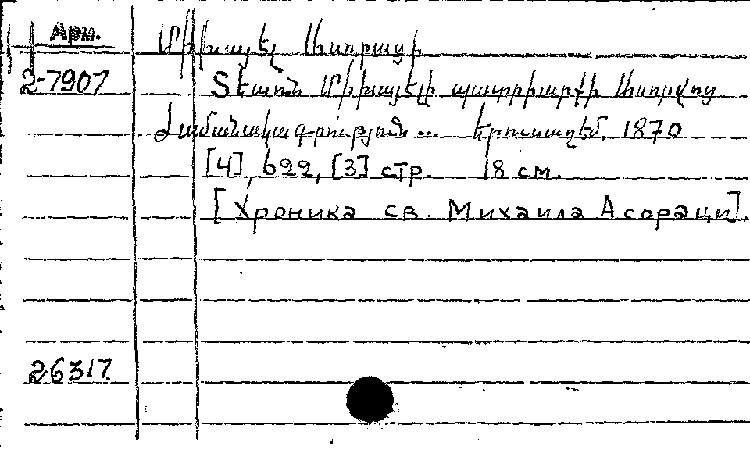 Арм.
Միխայել Ասորացի
2-7907
Տեառն Միխայելի պատրիարքի Ասորւոց
Ժամանակագրութիւն... Երուսաղեմ, 1870
[4], 622, [3] стр. 18 см.
[Хроника св. Михаила Асораци].
26317